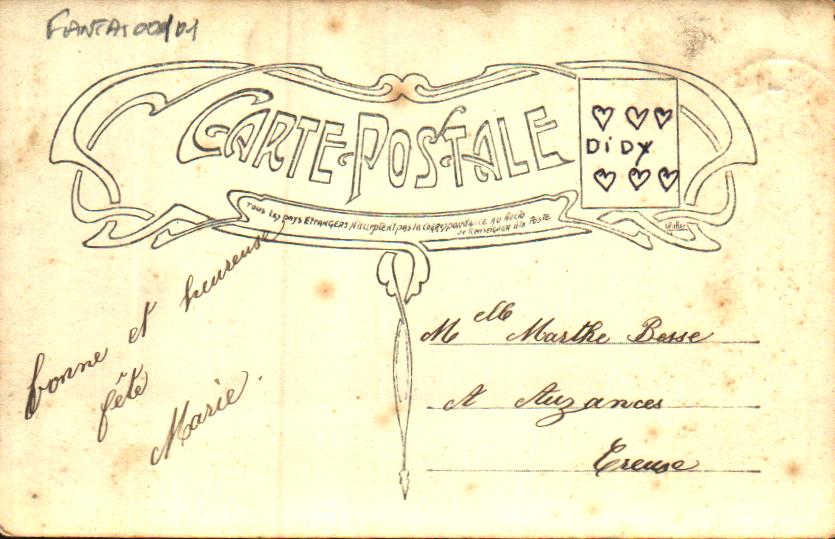 FANTAI00U01
CARTE-POSTALE
DiDY
TOUS les pays ETRANGERS N'acceptent pas la CORRESpondance AU Recto
Se RENSEIGNER à la POSTE
bonne et heureuse
fête
Marie.
M elle Marthe Besse
A Auzances
Creuse